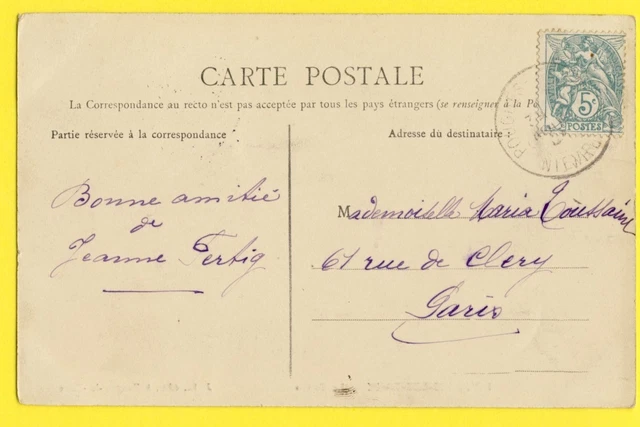 CARTE POSTALE
La Correspondance au recto n'est pas acceptée par tous les pays étrangers (se renseigner à la Po
Partie réservée à la correspondance
Adresse du destinataire
5c
POSTES
Bonne amitié
de
Jeanne Fertig
Mademoiselle Maria Toussaint
61 rue de Clery
Paris